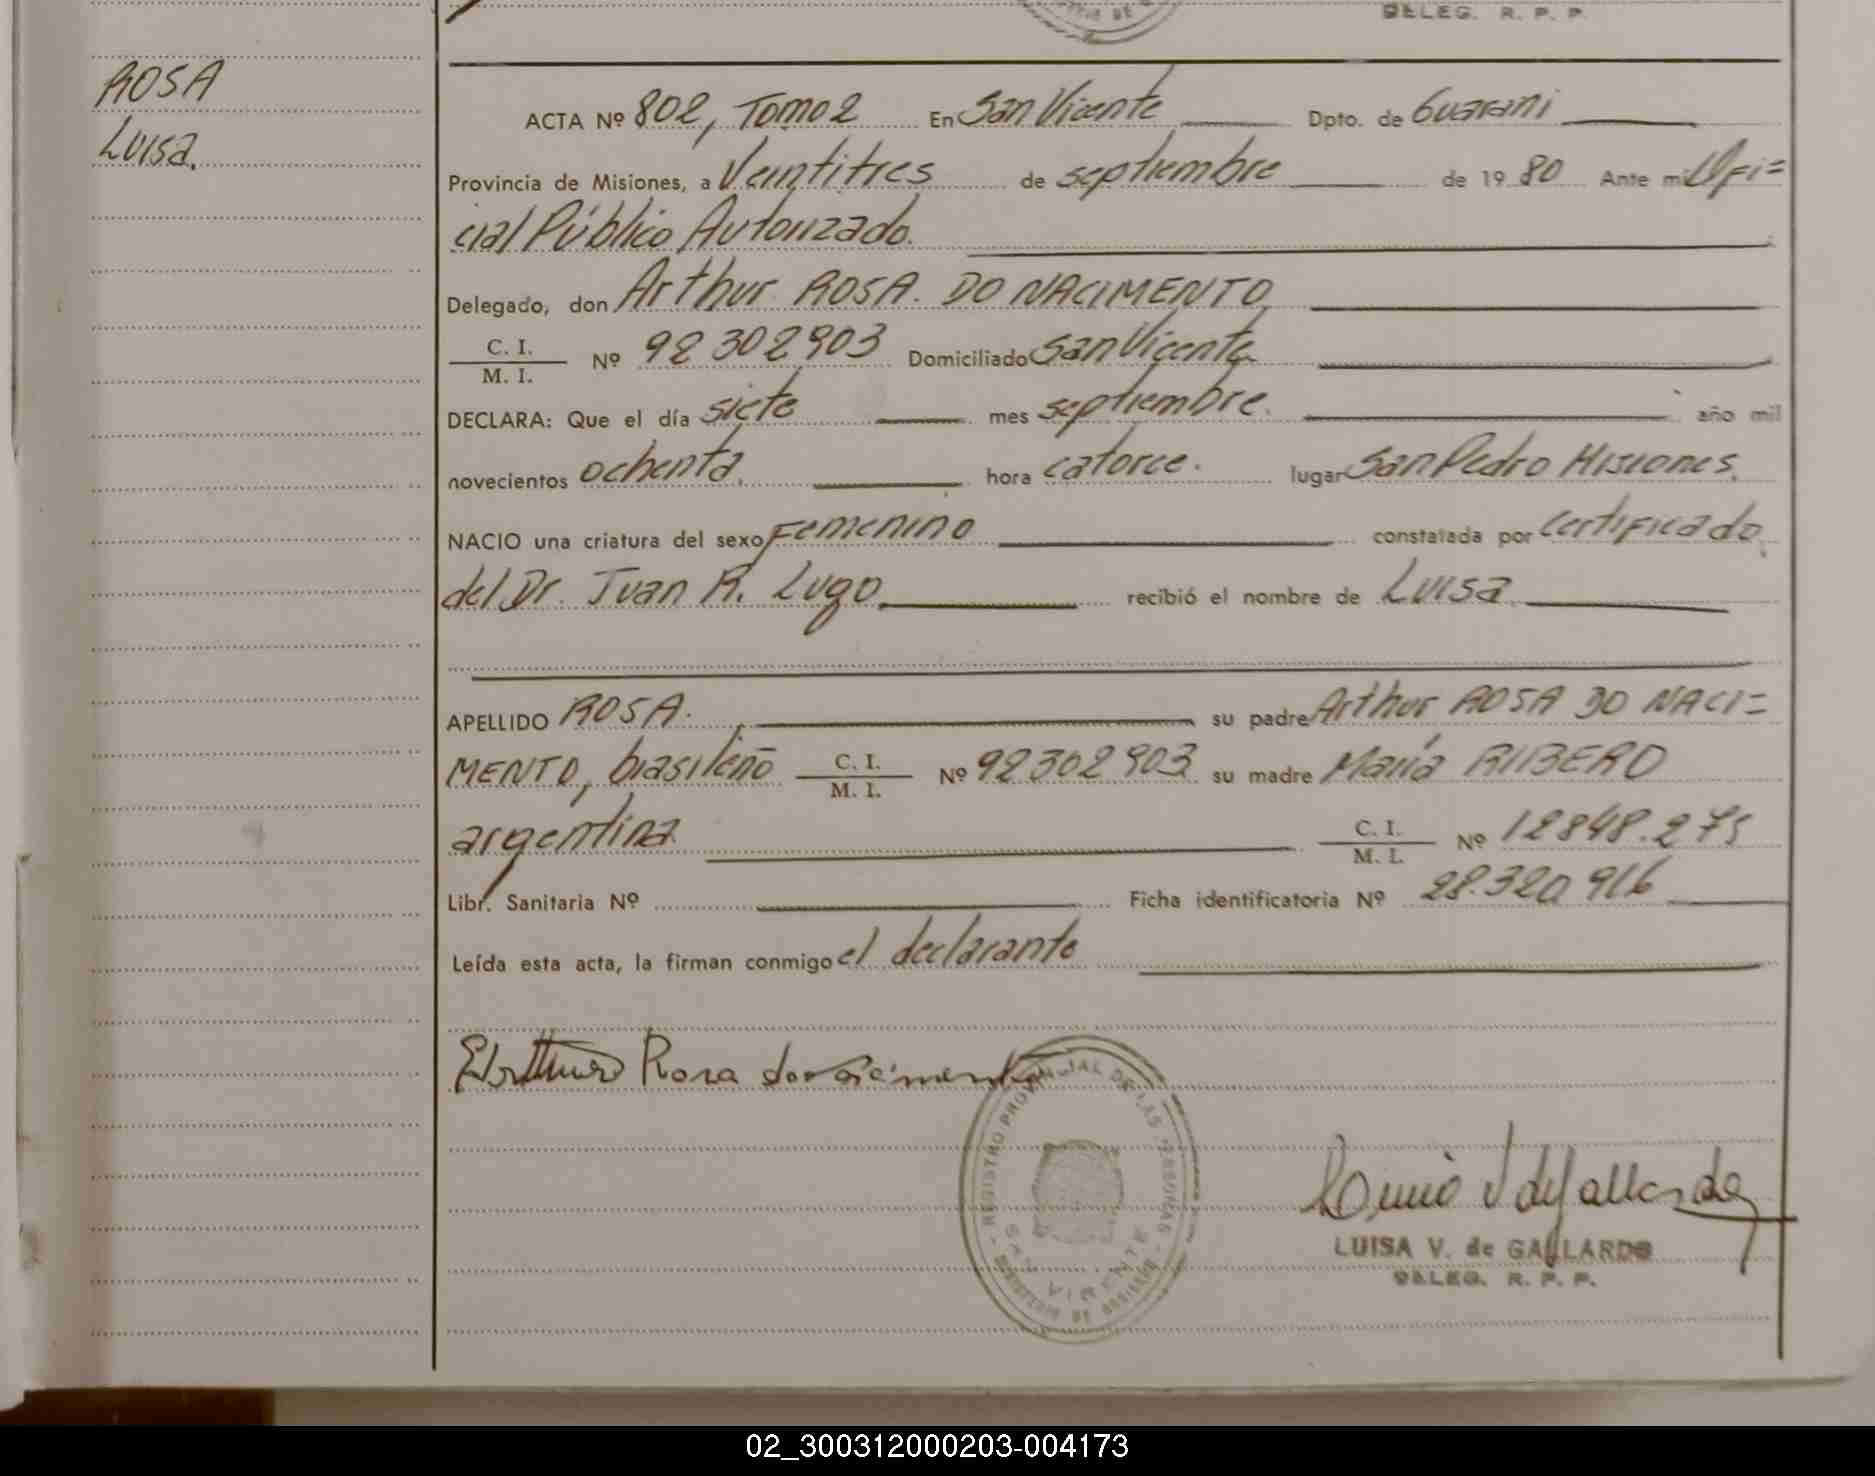 DELEG. R. P. P.
ROSA
Luisa.
ACTA Nº 802, Tomo 2 En San Vicente Dpto. de Guaraní
Provincia de Misiones, a Veintitres de septiembre de 19 80 Ante mi Ofi=
cial Público Autorizado.
Delegado, don Arthur ROSA. DO NACIMENTO
C. I.
M. I. Nº 92 302903 Domiciliado San Vicente
DECLARA: Que el día siete mes septiembre. año mil
novecientos ochenta, hora catorce. lugar San Pedro Misiones.
NACIO una criatura del sexo Femenino constatada por certificado
del Dr. Juan R. Lugo, recibió el nombre de Luisa
APELLIDO ROSA. su padre Arthur ROSA DO NACI=
MENTO, brasileño C. I.
M. I. Nº 92302903 su madre María RIBERO
argentina C. I.
M. I. Nº 12848.275
Libr. Sanitaria Nº Ficha identificatoria Nº 28.320 916
Leída esta acta, la firman conmigo el declarante
Rosa
REGISTRO PROVINCIAL DE LAS PERSONAS
SAN VICENTE
MINISTERIO DE GOBIERNO
LUISA V. de GALLARDO
DELEG. R. P. P.
02_300312000203-004173